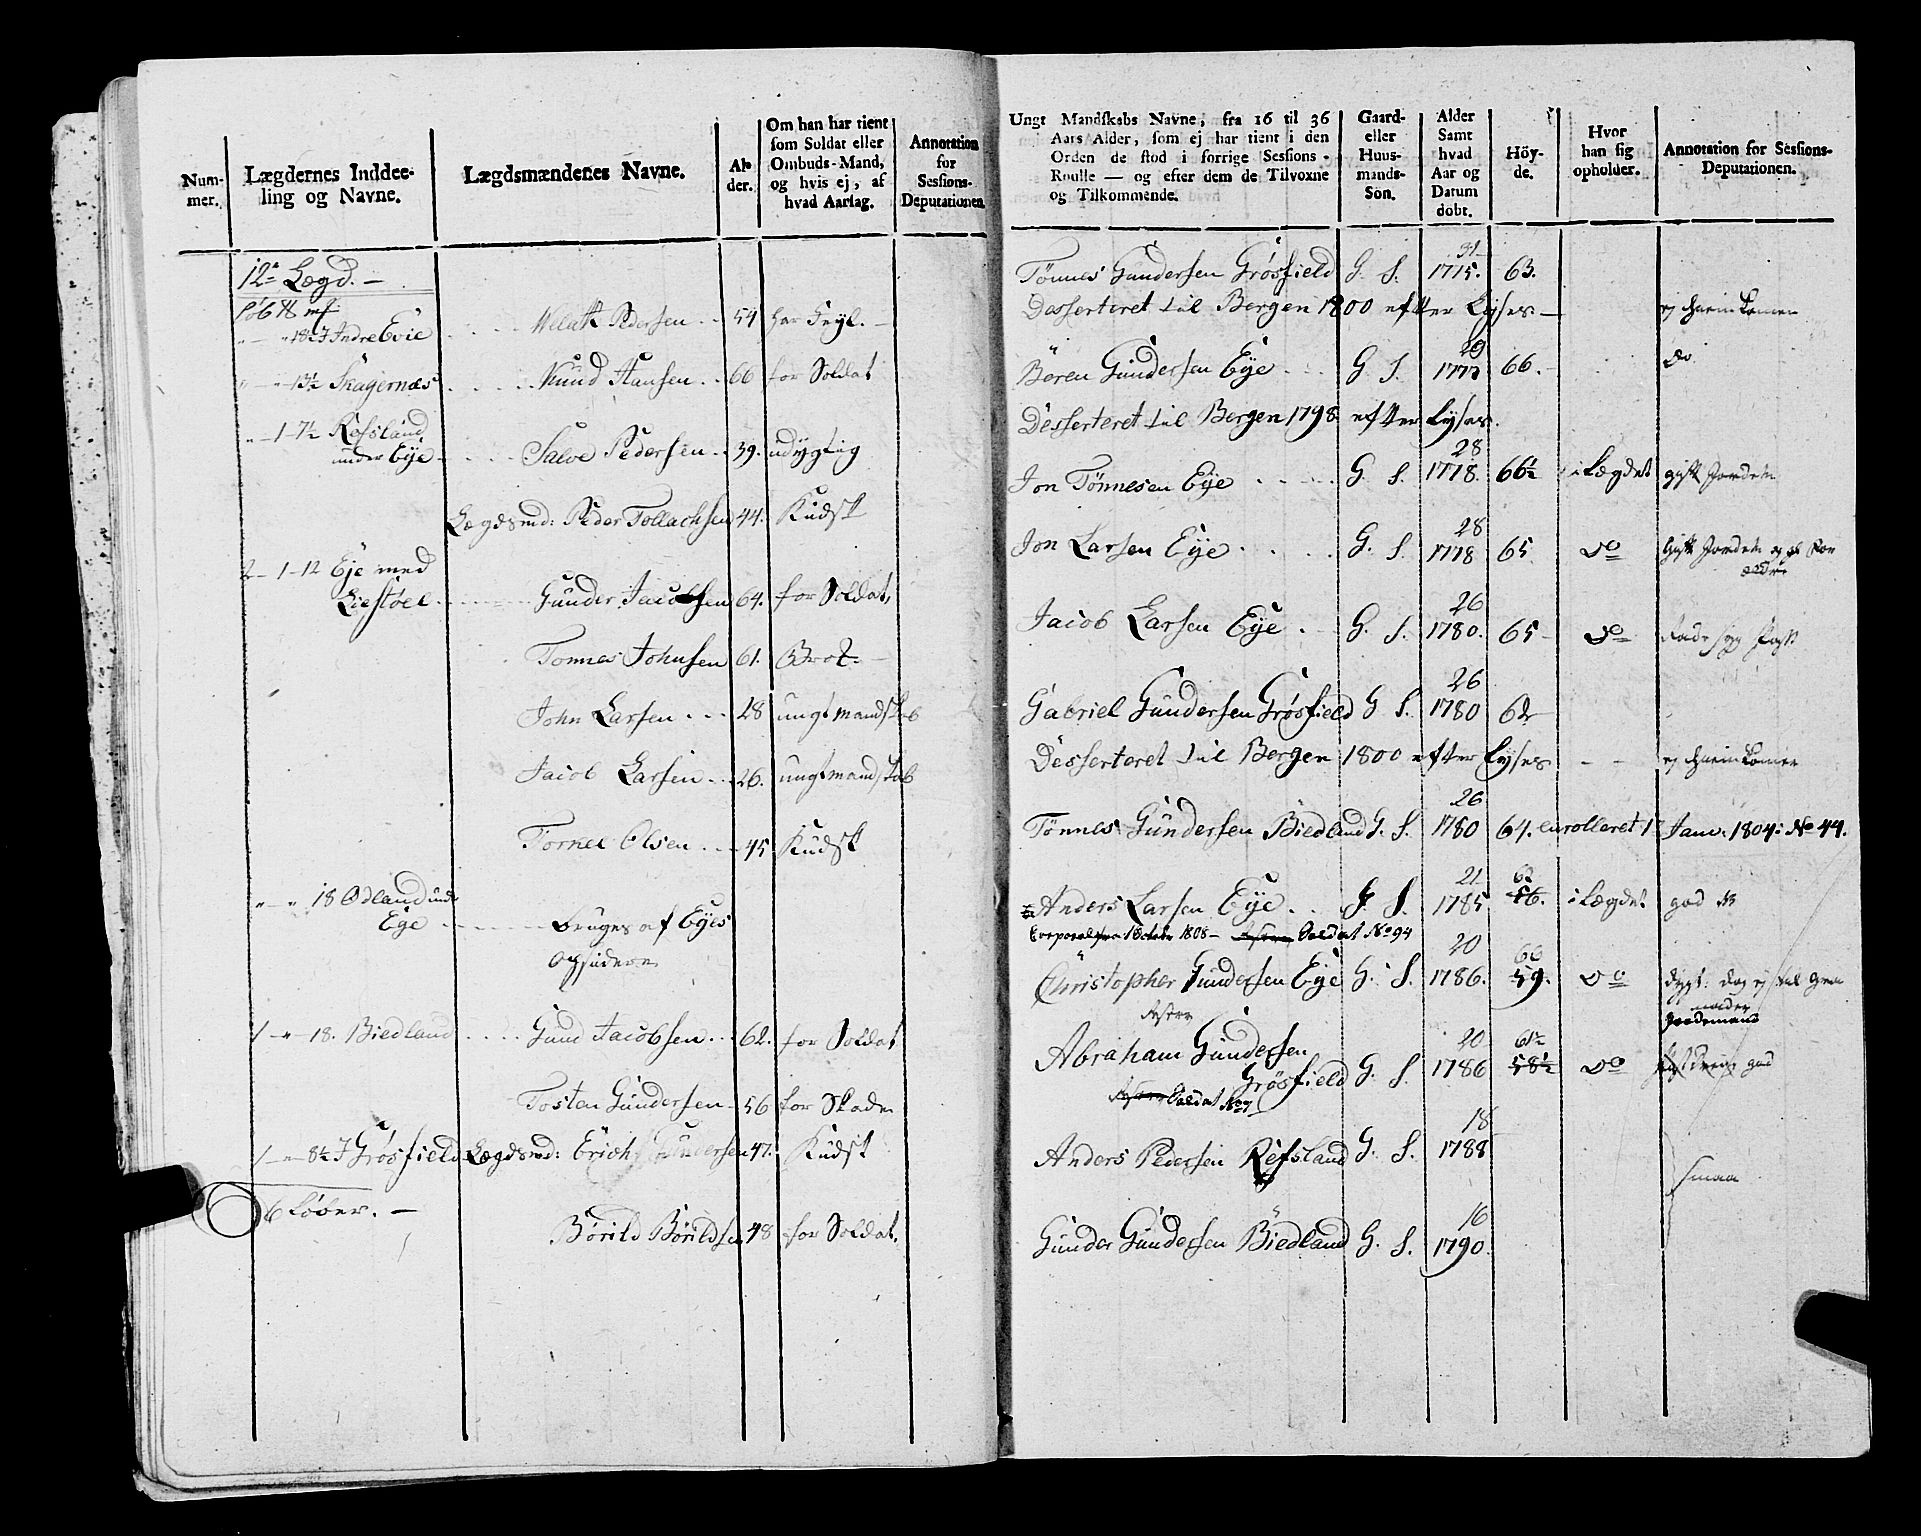 Num-
mer.
Lægdernes Inddee-
ling og Navne.
Lægdsmændenes Navne.
Al-
der.
Om han har tient
som Soldat eller
Ombuds-Mand,
og hvis ej, af
hvad Aarsag.
Annotation
for
Sessions-
Deputationen
12te Lægd. —
Løb ℔ mk
" — " 18 I Indre Evie
Pedersen . . 54 har Feyl. —
" — " 13½ Skagernæs . . . . . Knud Hansen . . 66 for Soldat
" — 1 - 7½ Røfsland
under Eye — . . . . Salve Pedersen . . 39. udygtig
Lægdsmd: Peder Tollachsen 44. Kudsk
2 — 1 - 12 Eje med
Liestøel . . . . Gunder Jacobsen 64. for Soldat,
Tønnes Johnsen 61. Brot. —
John Larsen . . . 28 ungt mandskab
Jacob Larsen . . . 26. ungt mandskab
Tornes Olsen . . . 45 Kudsk
" — " 18 Ødland und
Eye . . . . . . bruges af Eyes
Opsidere
1 — " — 18. Biedland . . . . Gund Jacobsen . . . 62. for Soldat
Tosten Gundersen 56 for Skade
1 — " — 8½ I Grøsfield Lægdsmd: Erich Gundersen 47. Kudsk
6 Løber. —
Børild Børildsen 48 for Soldat.
Ungt Mandskabs Navne, fra 16 til 36
Aars Alder, som ej har tient i den
Orden de stod i forrige Sessions-
Roulle — og efter dem de Tilvoxne
og Tilkommende.
Gaard-
eller
Huus-
mands-
Søn.
Alder
Samt
hvad
Aar og
Datum
døbt.
Höy-
de.
Hvor
han sig
opholder.
Annotation for Sessions-
Deputationen.
31
Tønnes Gundersen Grøsfield G. S. 1775. 63.
Desserteret til Bergen 1800 efter Lyses — ej hiemkommen
29
Børen Gundersen Eye . . . G S. 1777 66. — do
Desserteret til Bergen 1798. efter Lyses.
28
Jon Tønnesen Eye . . . . . G. S. 1778. 66½ i Lægdet gift Jordem
28
Jon Larsen Eye . . . . . G. S. 1778 65 do Gift Jordem
26
Jacob Larsen Eye . . . G. S. 1780. 65 do
26
Gabriel Gundersen Grøsfield G S. 1780 62
Desserteret til Bergen 1800 efter Lyses — — ej hiemkommen
26
Tønnes Gundersen Biedland G. S. 1780 64. enrolleret 17 Janv: 1804: No 44.
21 62
Anders Larsen Eye . . . G. S. 1785 56. i Lægdet god
Corporal fra 1 Octobr 1808 — Soldat No 94
20 60
Christopher Gundersen Eye G. S. 1786. 59. do dygt: dog ej til Gre
nader
20 61½
Abraham Gundersen
Grøsfield G. S. 1786 58½ do god
Soldat No 7
18
Anders Pedersen Refsland G. S. 1788
smaa
16
Gunder Gundersen Biedland G. S. 1790.